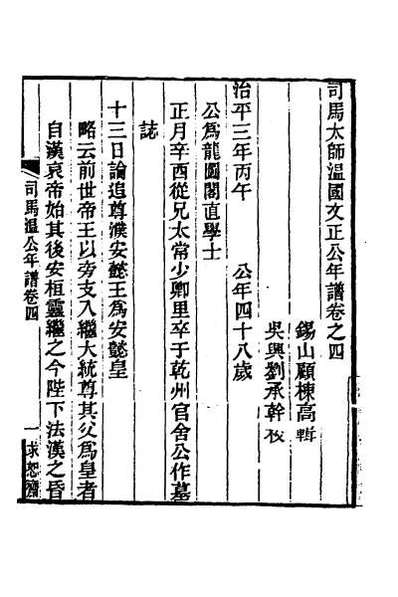 司馬太師溫國文正公年譜卷之四
錫山顧棟高輯
吳興劉承幹校
治平三年丙午　公年四十八歲
公爲龍圖閣直學士
正月辛酉從兄太常少卿里卒于乾州官舍公作墓
誌
十三日論追尊濮安懿王爲安懿皇
略云前世帝王以旁支入繼大統尊其父爲皇者
自漢哀帝始其後安桓靈繼之今陛下法漢之昏
司馬溫公年譜卷四
一
求恕齋